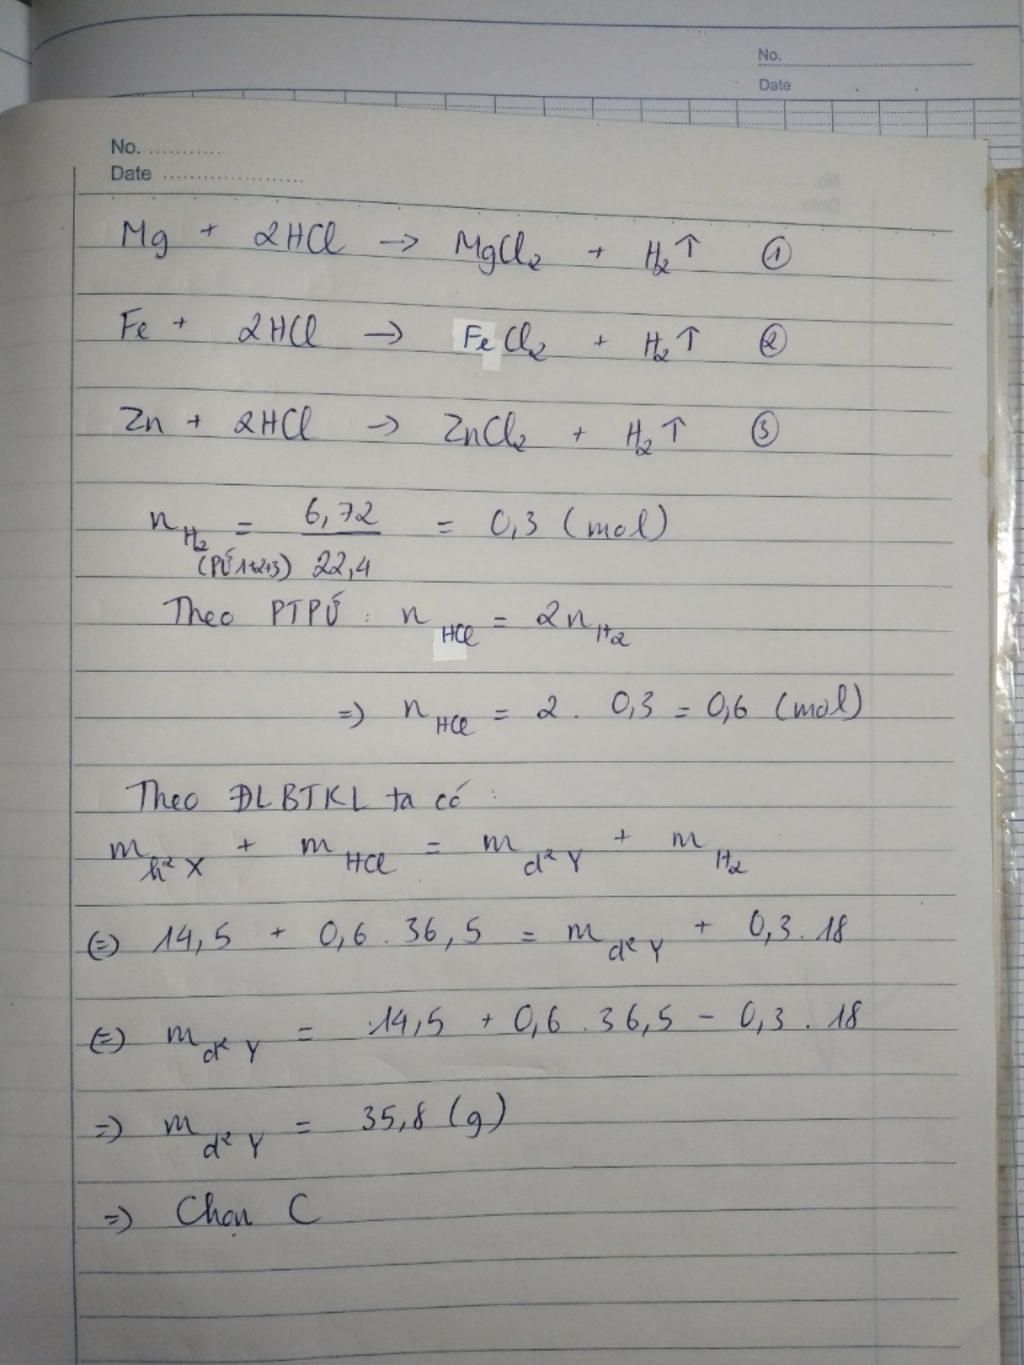 No.
Date
No. ...........
Date ......................
Mg + 2HCl → MgCl₂ + H₂↑ ①
Fe + 2HCl → FeCl₂ + H₂↑ ②
Zn + 2HCl → ZnCl₂ + H₂↑ ③
n H₂ (PỨ 1+2+3) = 6,72 / 22,4 = 0,3 (mol)
Theo PTPỨ : n HCl = 2n H₂
=) n HCl = 2 . 0,3 = 0,6 (mol)
Theo ĐLBTKL ta có :
m h² X + m HCl = m d² Y + m H₂
(=) 14,5 + 0,6 . 36,5 = m d² Y + 0,3 . 18
(=) m d² Y = 14,5 + 0,6 . 36,5 - 0,3 . 18
=) m d² Y = 35,8 (g)
=) Chọn C